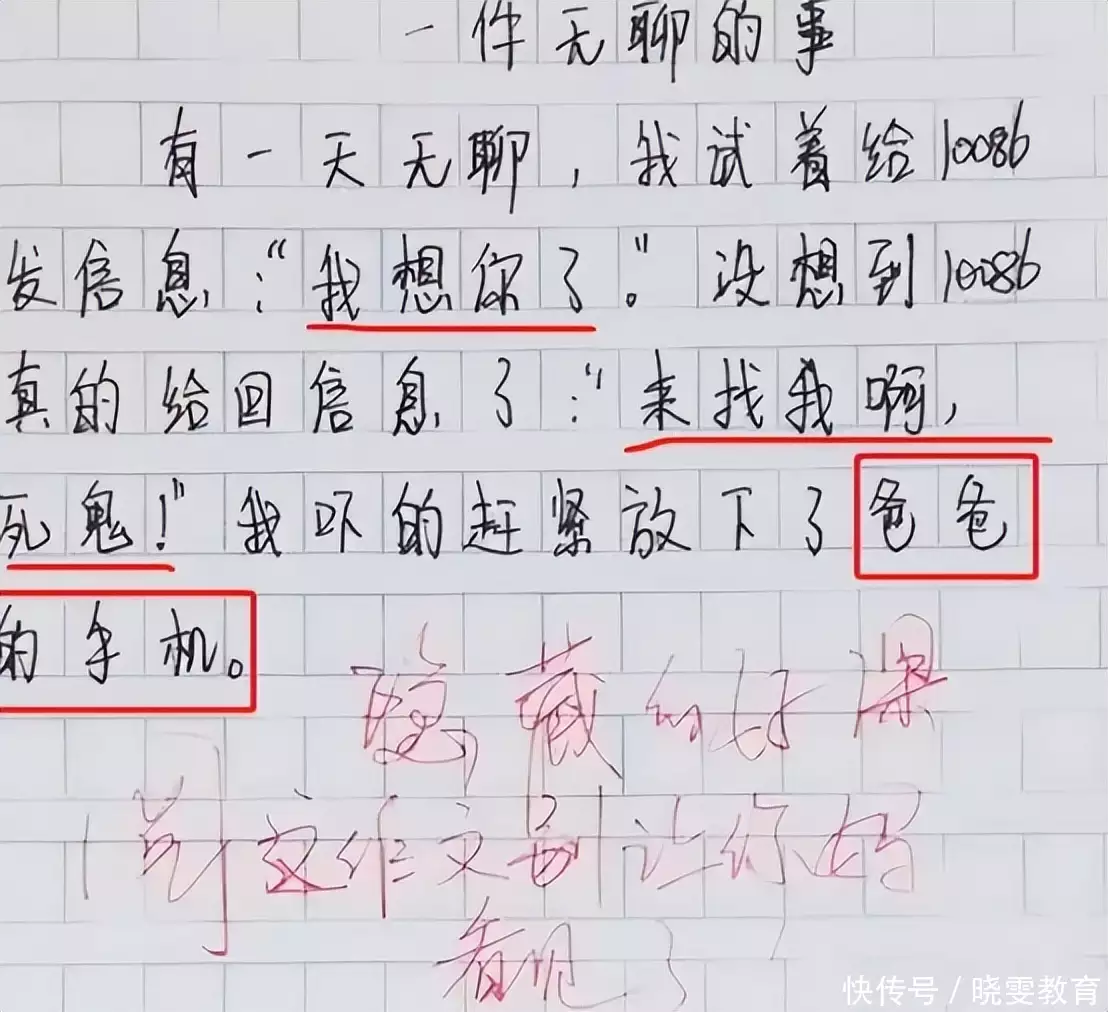 一件无聊的事
有一天无聊，我试着给10086
发信息：“我想你了。”没想到10086
真的给回信息了：“来找我啊，
死鬼！”我吓的赶紧放下了爸爸
的手机。
隐藏的好深
这作文别让你妈
看见了
快传号／晓雯教育